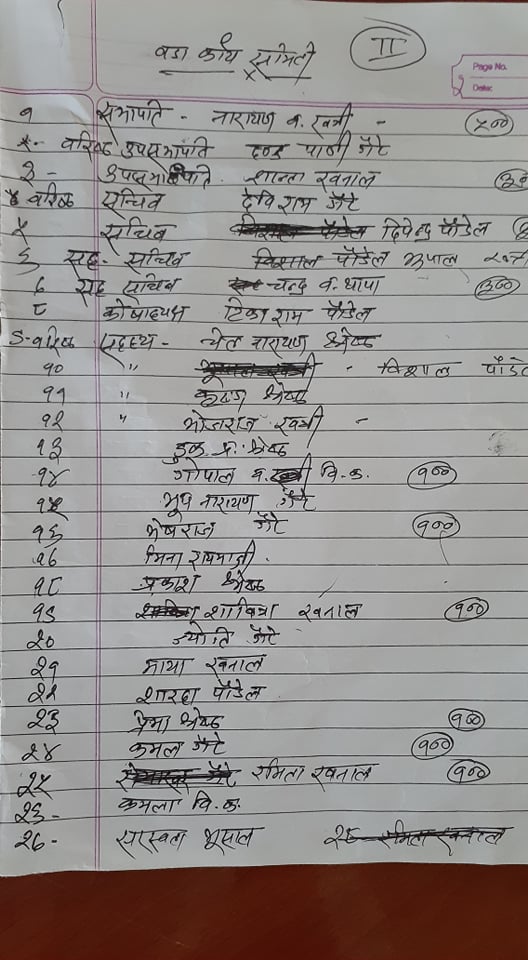 वडा कार्य समिती
II
Page No.
Date:
१ सभापति - नारायण व. खत्री - ५००
२- वरिष्ठ उपसभापति दण्ड पाणी जैरे
३- उपसभापति शान्ता खनाल
४ वरिष्ठ सचिव देवि राम जैरे
५ सचिव दिपेन्द्र पौडेल
६ सह- सचिव विशाल पौडेल भुपाल खत्री
७ सह सचिव चन्द्र व. थापा ३००
८ कोषाध्यक्ष टिका राम पौडेल
९- वरिष्ठ सदस्य - चेत नारायण श्रेष्ठ
१० " - विशाल पौडेल
११ " कृष्ण श्रेष्ठ
१२ " भोजराज खत्री -
१३ डुक. प्र. श्रेष्ठ
१४ गोपाल व. वि. क. १००
१५ भुप नारायण जैरे
१६ भेषराज जैरे १००
१७ मिना रायमाझी
१८ प्रकाश श्रेष्ठ
१९ शावित्रा खनाल १००
२० ज्योति जैरे
२१ माया खनाल
२२ शारदा पौडेल
२३ प्रेमा श्रेष्ठ १००
२४ कमल जैरे १००
२५ रमिता खनाल १००
२६- कमला वि. क.
२७- सरस्वता भुसाल